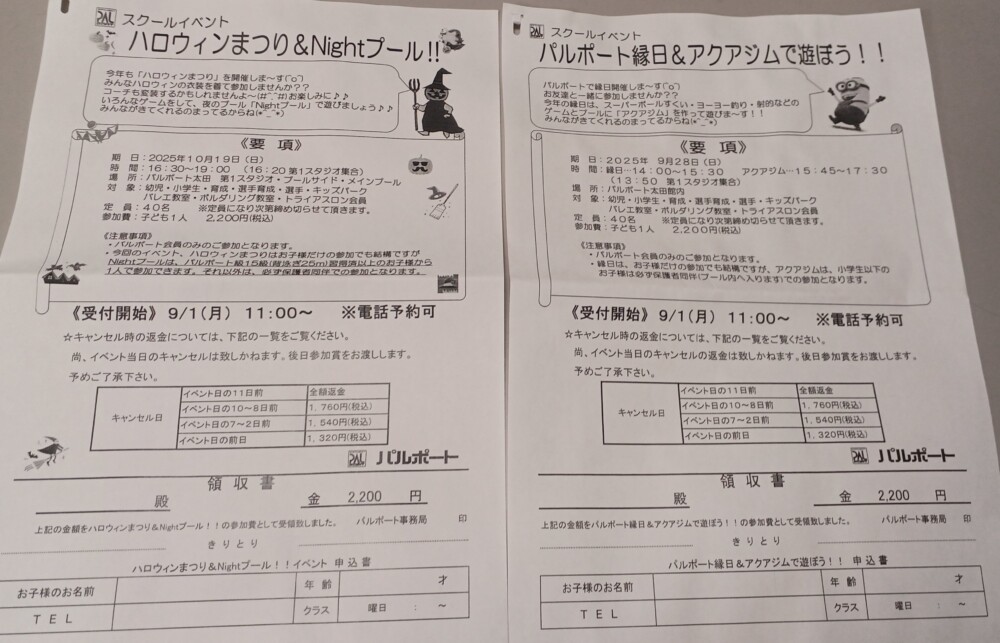 PAL スクールイベント
ハロウィンまつり＆Nightプール!!
今年も「ハロウィンまつり」を開催しま～す(^o^)
みんなハロウィンの衣装を着て参加しませんか？？
コーチも変装するかもしれませんよ～(#^_^#)お楽しみに♪♪
いろんなゲームをして、夜のプール「Nightプール」で遊びましょう♪♪
みんながきてくれるのまってるからね(*^_^*)
《要 項》
期 日：2025年10月19日（日）
時 間：16:30～19:00 （16:20 第1スタジオ集合）
場 所：パルポート太田 第1スタジオ・プールサイド・メインプール
対 象：幼児・小学生・育成・選手育成・選手・キッズパーク
バレエ教室・ボルダリング教室・トライアスロン会員
定 員：40名 ※定員になり次第締め切らせて頂きます。
参加費：子ども1人 2,200円(税込)
《注意事項》
・パルポート会員のみのご参加となります。
・今回のイベント、ハロウィンまつりはお子様だけの参加でも結構ですが
Nightプールは、パルポート級15級(背泳ぎ25m)習得済以上のお子様から
1人で参加できます。それ以外は、必ず保護者同伴での参加となります。
《受付開始》9/1(月) 11:00～ ※電話予約可
☆キャンセル時の返金については、下記の一覧をご覧ください。
尚、イベント当日のキャンセルは致しかねます。後日参加賞をお渡しします。
予めご了承下さい。
キャンセル日
イベント日の11日前 全額返金
イベント日の10～8日前 1,760円(税込)
イベント日の7～2日前 1,540円(税込)
イベント日の前日 1,320円(税込)
PAL パルポート
領 収 書
殿 金 2,200 円
上記の金額をハロウィンまつり＆Nightプール！！の参加費として受領致しました。 パルポート事務局 印
きりとり
ハロウィンまつり＆Nightプール！！イベント 申込書
お子様のお名前 年 齢 才
TEL クラス 曜日 : ～
PAL スクールイベント
パルポート縁日＆アクアジムで遊ぼう！！
パルポートで縁日開催しま～す(^o^)
お友達と一緒に参加しませんか？？
今年の縁日は、スーパーボールすくい・ヨーヨー釣り・射的などの
ゲームとプールに「アクアジム」を作って遊びま～す！！
みんながきてくれるのまってるからね(*^_^*)
《要 項》
期 日：2025年 9月28日（日）
時 間：縁日…14:00～15:30 アクアジム…15:45～17:30
（13:50 第1スタジオ集合）
場 所：パルポート太田館内
対 象：幼児・小学生・育成・選手育成・選手・キッズパーク
バレエ教室・ボルダリング教室・トライアスロン会員
定 員：40名 ※定員になり次第締め切らせて頂きます。
参加費：子ども1人 2,200円(税込)
《注意事項》
・パルポート会員のみのご参加となります。
・縁日は、お子様だけの参加でも結構ですが、アクアジムは、小学生以下の
お子様は必ず保護者同伴(プール内へ入ります)での参加となります。
《受付開始》9/1(月) 11:00～ ※電話予約可
☆キャンセル時の返金については、下記の一覧をご覧ください。
尚、イベント当日のキャンセルの返金は致しかねます。後日参加賞をお渡しします。
予めご了承下さい。
キャンセル日
イベント日の11日前 全額返金
イベント日の10～8日前 1,760円(税込)
イベント日の7～2日前 1,540円(税込)
イベント日の前日 1,320円(税込)
PAL パルポート
領 収 書
殿 金 2,200 円
上記の金額をパルポート縁日＆アクアジムで遊ぼう！！の参加費として受領致しました。 パルポート事務局 印
きりとり
パルポート縁日＆アクアジムで遊ぼう！！ 申込書
お子様のお名前 年 齢 才
TEL クラス 曜日 : ～